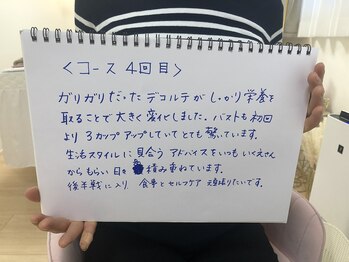 ＜コース4回目＞
ガリガリだったデコルテがしっかり栄養を
取ることで大きく変化しました。バストも初回
より3カップアップしていてとても驚いています。
生活スタイルに見合うアドバイスをいつもいくえさん
からもらい日々積み重ねています。
後半戦に入り 食事とセルフケア 頑張りたいです。